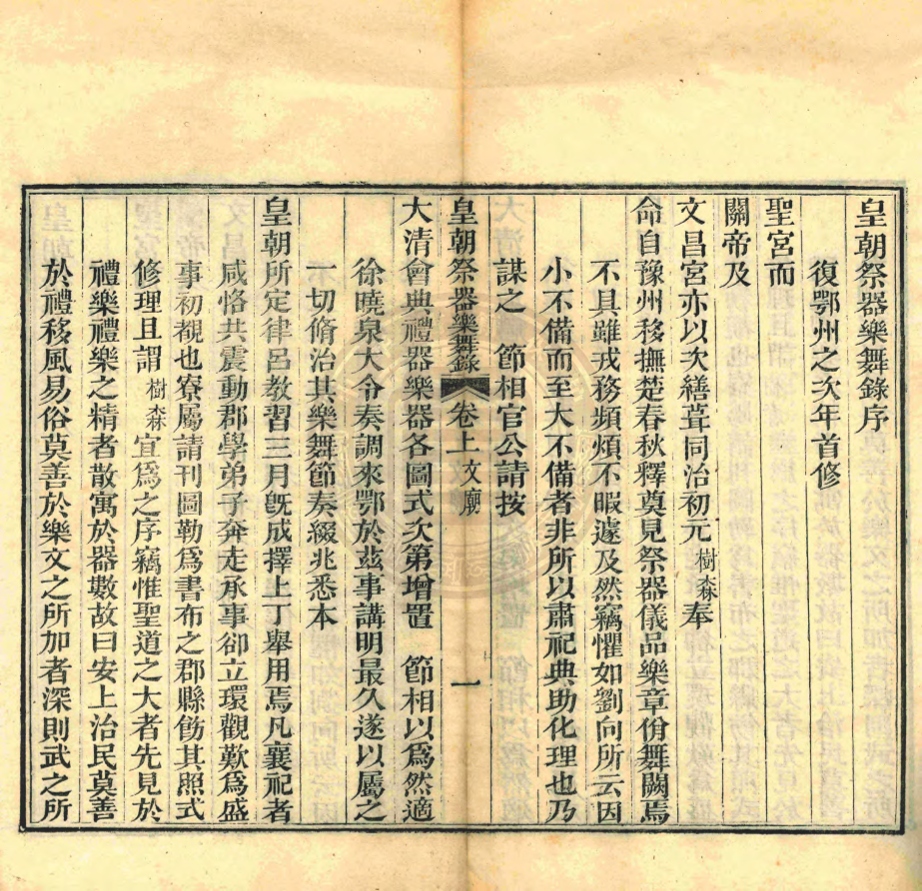 皇朝祭器樂舞錄序
復鄂州之次年首修
聖宮而
關帝及
文昌宮亦以次繕葺同治初元樹森奉
命自豫州移撫楚春秋釋奠見祭器儀品樂章佾舞闕焉
不具雖戎務頻煩不暇遽及然竊懼如劉向所云因
小不備而至大不備者非所以肅祀典助化理也乃
謀之　節相官公請按
皇朝祭器樂舞錄　卷上文廟　一
大清會典禮器樂器各圖式次第增置　節相以爲然適
徐曉泉大令奏調來鄂於茲事講明最久遂以屬之
一切脩治其樂舞節奏綴兆悉本
皇朝所定律呂教習三月旣成擇上丁舉用焉凡襄祀者
咸恪共震動郡學弟子奔走承事卻立環觀歎爲盛
事初覩也寮屬請刊圖勒爲書布之郡縣飭其照式
修理且謂樹森宜爲之序竊惟聖道之大者先見於
禮樂禮樂之精者散寓於器數故曰安上治民莫善
於禮移風易俗莫善於樂文之所加者深則武之所